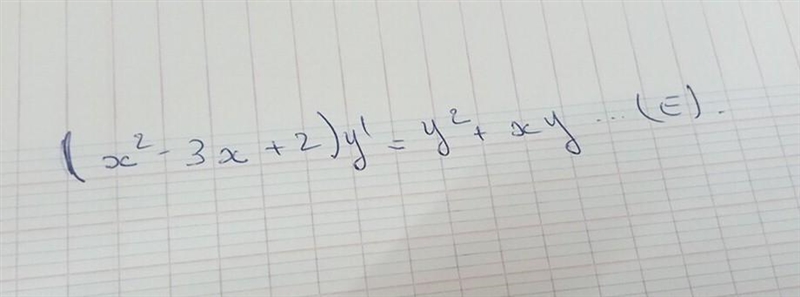 (x² - 3x + 2)y' = y² + xy ... (E).